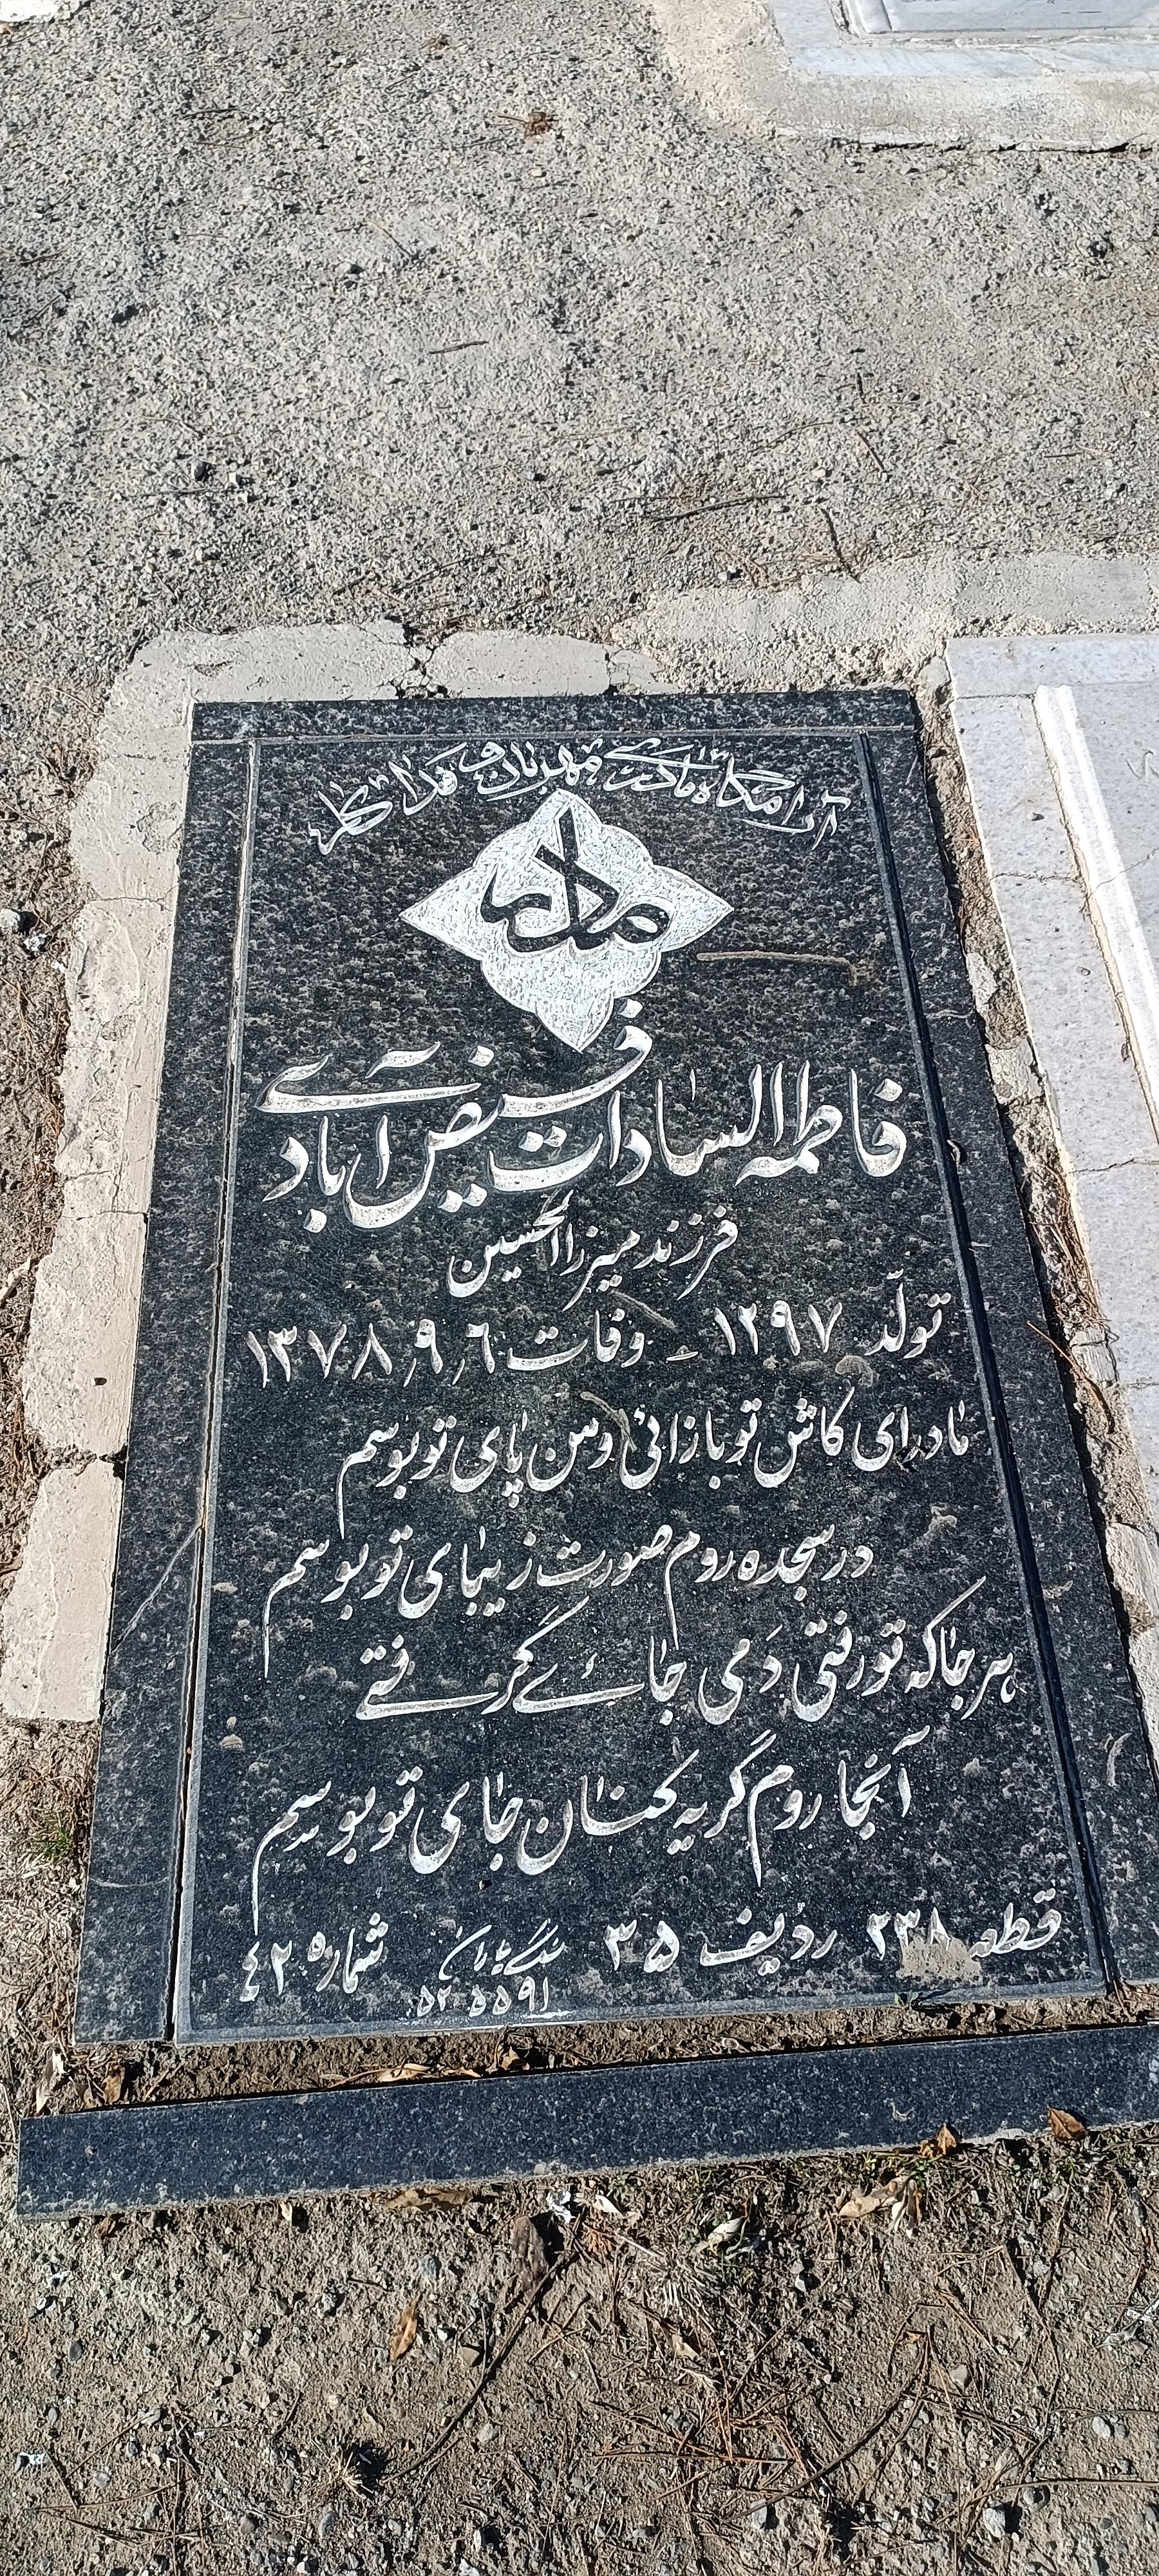 آرامگاه مادری مهربان و فداکار
فاطمه السادات فیض آبادی
فرزند میرزاالحسین
تولّد ۱۲۹۷ - وفات ۱۳۷۸٫۹٫۶
مادر ای کاش تو بازائی و من پای تو بوسم
در سجده روم صورت زیبای تو بوسم
هر جا که تو رفتی دَمی جائی گرفتی
آنجا روم گریه کنان جای تو بوسم
قطعه ۲۳۸ ردیف ۳۵ شماره ۴۲